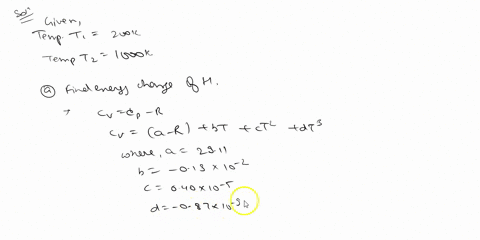 Sol:
Given,
Temp T₁ = 200k
Temp T₂ = 1000k
(a) Find energy change of H.
→ Cv = Cp - R
Cv = (a-R) + bT + cT² + dT³
where, a = 29.11
b = -0.19 × 10⁻²
c = 0.40 × 10⁻⁵
d = -0.87 × 10⁻⁹